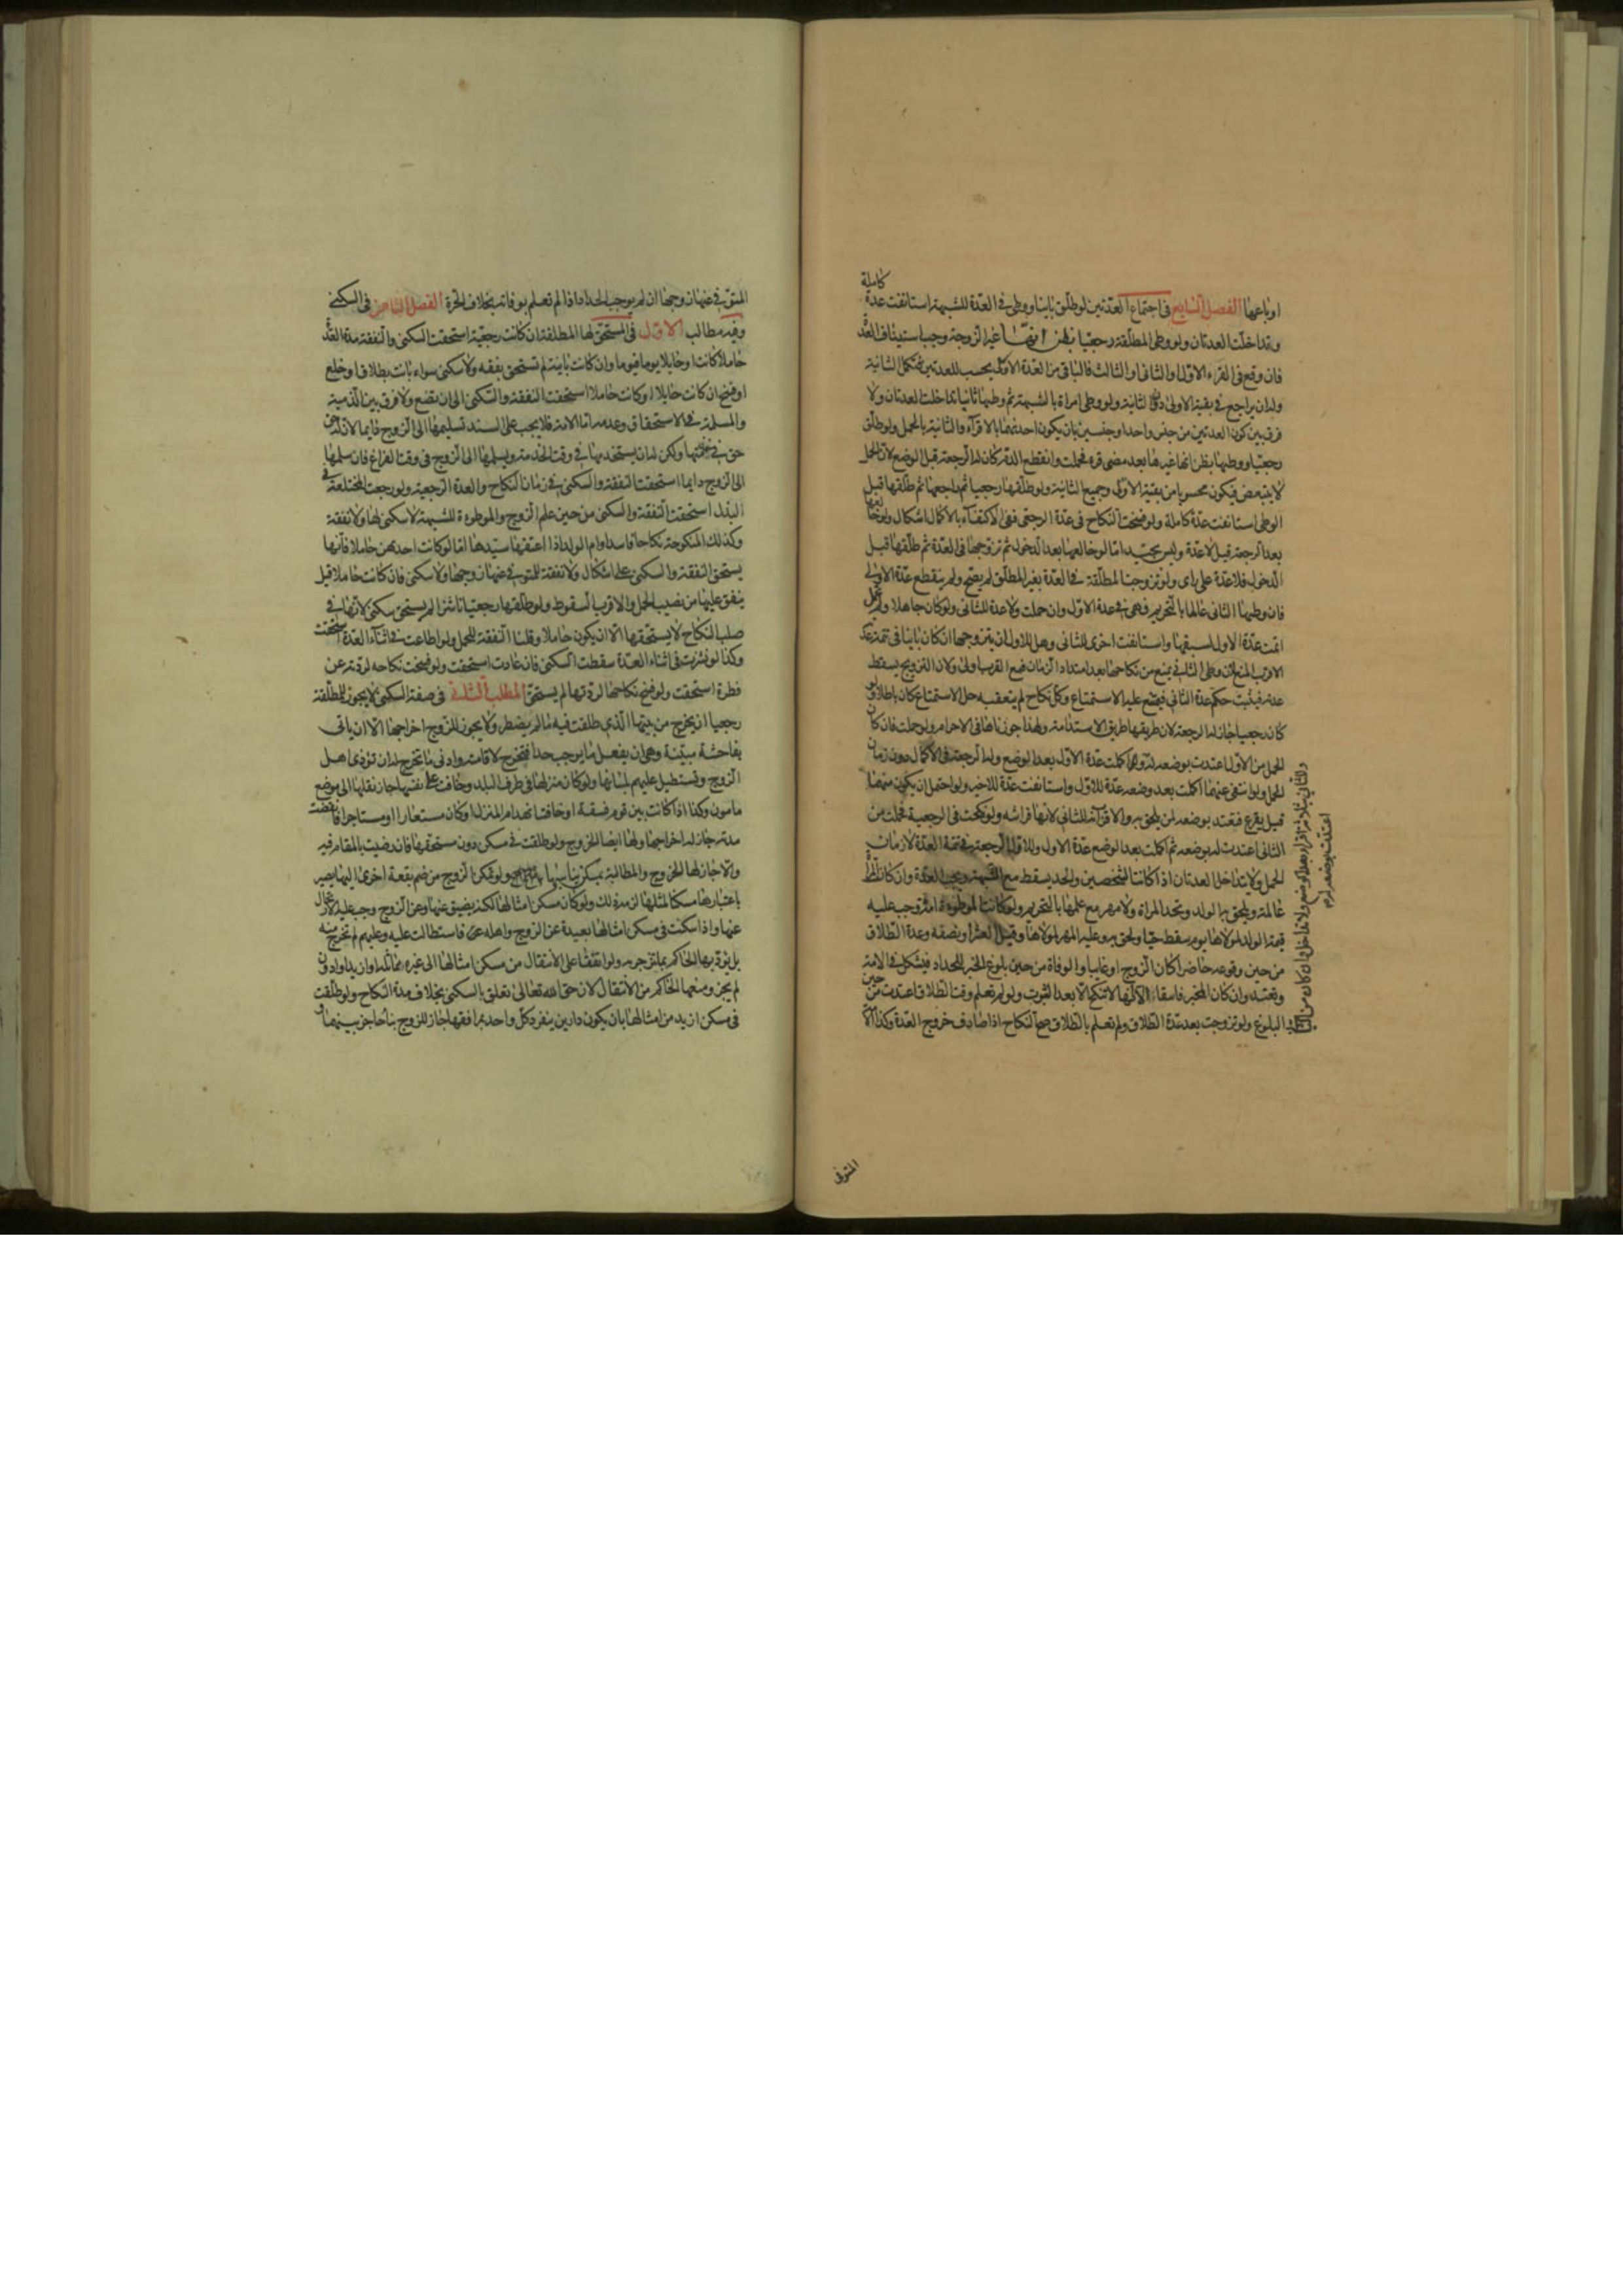 كاملة
او باعها الفصل السابع في اجتماع العدتين لو طلق باينا ووطى في العدة للشبهة استانفت عدة
وتداخلت العدتان ولو وطى المطلقة رجعيا بظن انها غير الزوجة وجب استيناف العدة
فان وقع في القرء الاول او الثاني او الثالث فالباقي من العدة الاولى يحسب للعدتين ثم تكمل الثانية
وله ان يراجع في بقية الاولى دون الثانية ولو وطى امراة بالشبهة ثم وطيها ثانيا تداخلت العدتان ولا
فرق بين كون العدتين من جنس واحد او جنسين بان يكون احدهما بالاقرآء والثانية بالحمل ولو طلق
رجعيا ووطيها بظن انها غيرها بعد مضي قرء فحملت وانقطع الدم كان له الرجعة قبل الوضع لان الحمل
لا يتبعض فيكون محسوبا من بقية الاولى وجميع الثانية ولو طلقها رجعيا ثم راجعها ثم طلقها قبل
الوطى استانفت عدة كاملة ولو فسخت النكاح في عدة الرجعي ففي الاكتفاء بالاكمال اشكال ولو خالعها
بعد الرجعة قيل لا عدة وليس بجيد اما لو خالعها بعد الدخول ثم تزوجها في العدة ثم طلقها قبل
الدخول فلا عدة على راى ولو تزوجت المطلقة في العدة بغير المطلق لم يصح ولم ينقطع عدة الاول
فان وطيها الثاني عالما بالتحريم فهي في عدة الاول وان حملت ولا عدة للثاني ولو كان جاهلا ولم تحمل
اتمت عدة الاول لسبقها واستانفت اخرى للثاني وهل للاول ان يتزوجها ان كان باينا في تتمة عدته
الاقرب المنع لان وطى الثاني يمنع من نكاحها بعد امتداد الزمان فمع القرب اولى ولان التزويج يسقط
عدته فيثبت حكم عدة الثاني فيمتنع عليه الاستمتاع وكل نكاح لم يتعقبه حل الاستمتاع كان باطلا ولو
كان رجعيا جاز له الرجعة لان طريقها طريق الاستدامة ولهذا جوزناها في الاحرام ولو حملت فان كان
الحمل من الاول اعتدت بوضعه له ثم اكملت عدة الاول بعد الوضع وله الرجعة في الاكمال دون زمان
الحمل ولو انتفى عنهما اكملت بعد وضعه عدة للاول واستانفت عدة للاخير ولو احتمل ان يكون منهما
قيل يقرع فتعتد بوضعه لمن يلحق به والاقرب انه للثاني لانها فراشه ولو نكحت في الرجعية فحملت من
الثاني اعتدت له بوضعه ثم اكملت بعد الوضع عدة الاول وللاول الرجعة في تتمة العدة لا زمان
الحمل ولا يتداخل العدتان اذا كانتا لشخصين والحد يسقط مع الشبهة ويجب العدة وان كانت المراة
عالمة ويلحق به الولد وتحد المراة ولا مهر مع علمها بالتحريم ولو كانت الموطوءة امة وجب عليه
قيمة الولد لمولاها يوم سقط حيا ولحق به وعليه المهر لمولاها وقيل العشر او نصفه وعدة الطلاق
من حين وقوعه حاضرا كان الزوج او غايبا والوفاة من حين بلوغ الخبر للحداد فيشكل في الامة
وتعتد وان كان المخبر فاسقا الا انها لا تنكح الا بعد الثبوت ولو لم تعلم وقت الطلاق اعتدت من حين
البلوغ ولو تزوجت بعد عدة الطلاق ولم تعلم بالطلاق صح النكاح اذا صادف خروج العدة وكذا الامة
وللثاني بثلاثة اقراء بعد الوضع ولا تداخل وان كان من
اعتدت بوضعه له
المتوفى
المتوفى عنها زوجها ان لم يوجب الحداد اذا لم تعلم بوفاته بخلاف الحرة الفصل الثامن في السكنى
وفيه مطالب الاول في المستحق لها المطلقة ان كانت رجعية استحقت السكنى والنفقة مدة العدة
حاملا كانت او حايلا يوما فيوما وان كانت باينة لم تستحق نفقة ولا سكنى سواء بانت بطلاق او خلع
او فسخ ان كانت حايلا ولو كانت حاملا استحقت النفقة والسكنى الى ان تضع ولا فرق بين الذمية
والمسلمة في الاستحقاق وعدمه اما الامة فلا يجب على السيد تسليمها الى الزوج دايما لان له حق
في خدمتها ولكن له ان يستخدمها في وقت الخدمة ويسلمها الى الزوج في وقت الفراغ فان سلمها
الى الزوج دايما استحقت النفقة والسكنى في زمان النكاح والعدة الرجعية ولو رجعت المختلعة في
البذل استحقت النفقة والسكنى من حين علم الزوج والموطوءة للشبهة لا سكنى لها ولا نفقة
وكذلك المنكوحة نكاحا فاسدا وام الولد اذا اعتقها سيدها اما لو كانت احديهن حاملا فانها
يستحق النفقة والسكنى على اشكال ولا نفقة للمتوفى عنها زوجها ولا سكنى فان كانت حاملا قيل
ينفق عليها من نصيب الحمل والاقرب السقوط ولو طلقها رجعيا ناشزا لم يستحق سكنى لانها في
صلب النكاح لا يستحقها الا ان يكون حاملا وقلنا النفقة للحمل ولو اطاعت في اثناء العدة استحقت
وكذا لو نشزت في اثناء العدة سقطت السكنى فان عادت استحقت ولو فسخت نكاحه لردته عن
فطرة استحقت ولو فسخ نكاحها لردتها لم يستحق المطلب الثاني في صفة السكنى لا يجوز للمطلقة
رجعيا ان يخرج من بيتها الذي طلقت فيه ما لم يضطر ولا يجوز للزوج اخراجها الا ان ياتي
بفاحشة مبينة وهي ان يفعل ما يوجب حدا فتخرج لاقامته وادنى ما يخرج له ان تؤذي اهل
الزوج وتستطيل عليهم بلسانها ولو كان منزلها في طرف البلد وخافت على نفسها جاز نقلها الى موضع
مامون وكذا اذا كانت بين قوم فسقة او خافت انهدام المنزل او كان مستعارا او مستاجرا فانقضت
مدته جاز له اخراجها ولها ايضا الخروج ولو طلقت في مسكن دون مستحقها فان رضيت بالمقام فيه
والا جاز لها الخروج والمطالبة بمسكن يناسبها ولو تمكن الزوج من ضم بقعة اخرى اليها يصير
باعتبارها مسكنا لمثلها لزمه ذلك ولو كان مسكن امثالها لكنه يضيق عنها وعن الزوج وجب عليه الارتحال
عنها واذا سكنت في مسكن امثالها بعيدة عن الزوج واهله فاستطالت عليه وعليهم لم تخرج منه
بل يؤدبها الحاكم بما تنزجر به ولو اتفقا على الانتقال من مسكن امثالها الى غيره مماثل او ازيد او ادون
لم يجز ومنعهما الحاكم من الانتقال لان حق الله تعالى تعلق بالسكنى بخلاف مدة النكاح ولو طلقت
في مسكن ازيد من امثالها بان يكون دارين ينفرد كل واحد بمرافقها جاز للزوج بناء حاجز بينهما و